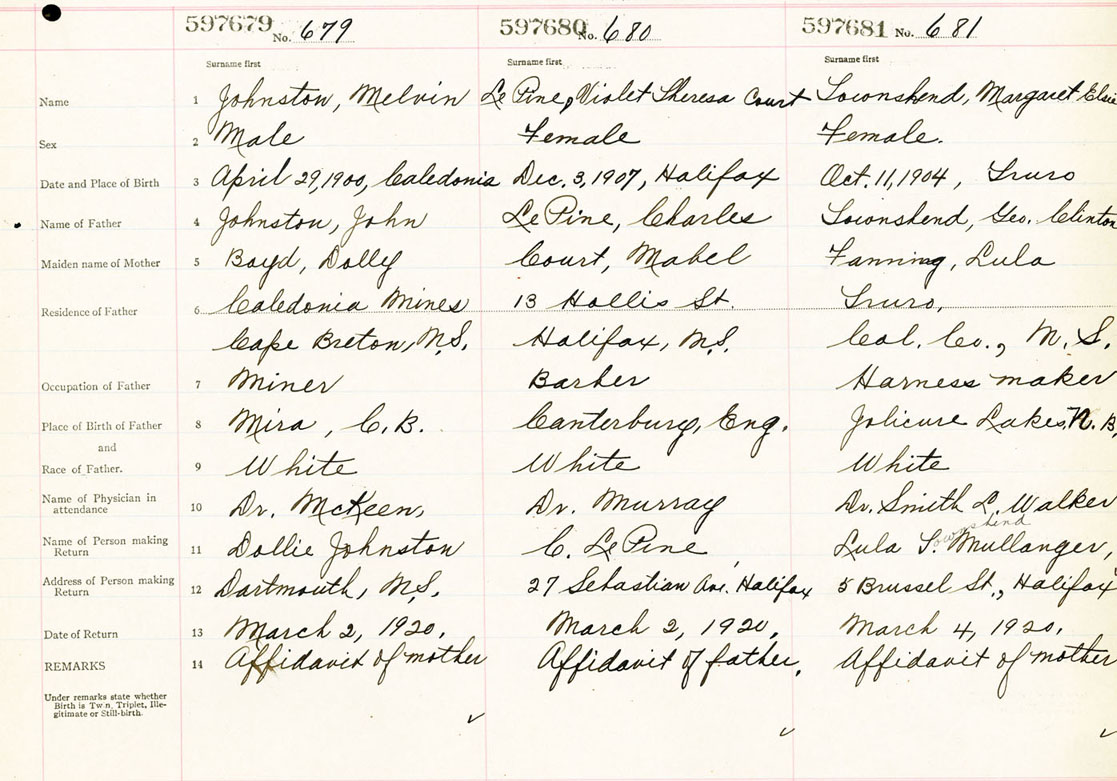 597679 No. 679 597680 No. 680 597681 No. 681
Surname first Surname first Surname first
Name 1 Johnston, Melvin Le Pine, Violet Theresa Court Townshend, Margaret Elsie
Sex 2 Male Female Female.
Date and Place of Birth 3 April 29, 1900, Caledonia Dec. 3, 1907, Halifax Oct. 11, 1904, Truro
Name of Father 4 Johnston, John Le Pine, Charles Townshend, Geo. Clinton
Maiden name of Mother 5 Boyd, Dolly Court, Mabel Fanning, Lula
Residence of Father 6 Caledonia Mines 13 Hollis St. Truro,
Cape Breton, N.S. Halifax, N.S. Col. Co., N.S.
Occupation of Father 7 Miner Barber Harness maker
Place of Birth of Father 8 Mira, C.B. Canterbury, Eng. Jolicure Lakes, N.B.
and
Race of Father. 9 White White White
Name of Physician in
attendance 10 Dr. McKeen, Dr. Murray Dr. Smith L. Walker
ownshend
Name of Person making
Return 11 Dollie Johnston C. Le Pine Lula T. Mullanger,
Address of Person making
Return 12 Dartmouth, N.S. 27 Sebastian Ave. Halifax 5 Brussel St., Halifax
Date of Return 13 March 2, 1920. March 2, 1920. March 4, 1920.
REMARKS 14 Affidavit of mother Affidavit of father. Affidavit of mother
Under remarks state whether
Birth is Twin, Triplet, Ille-
gitimate or Still-birth.